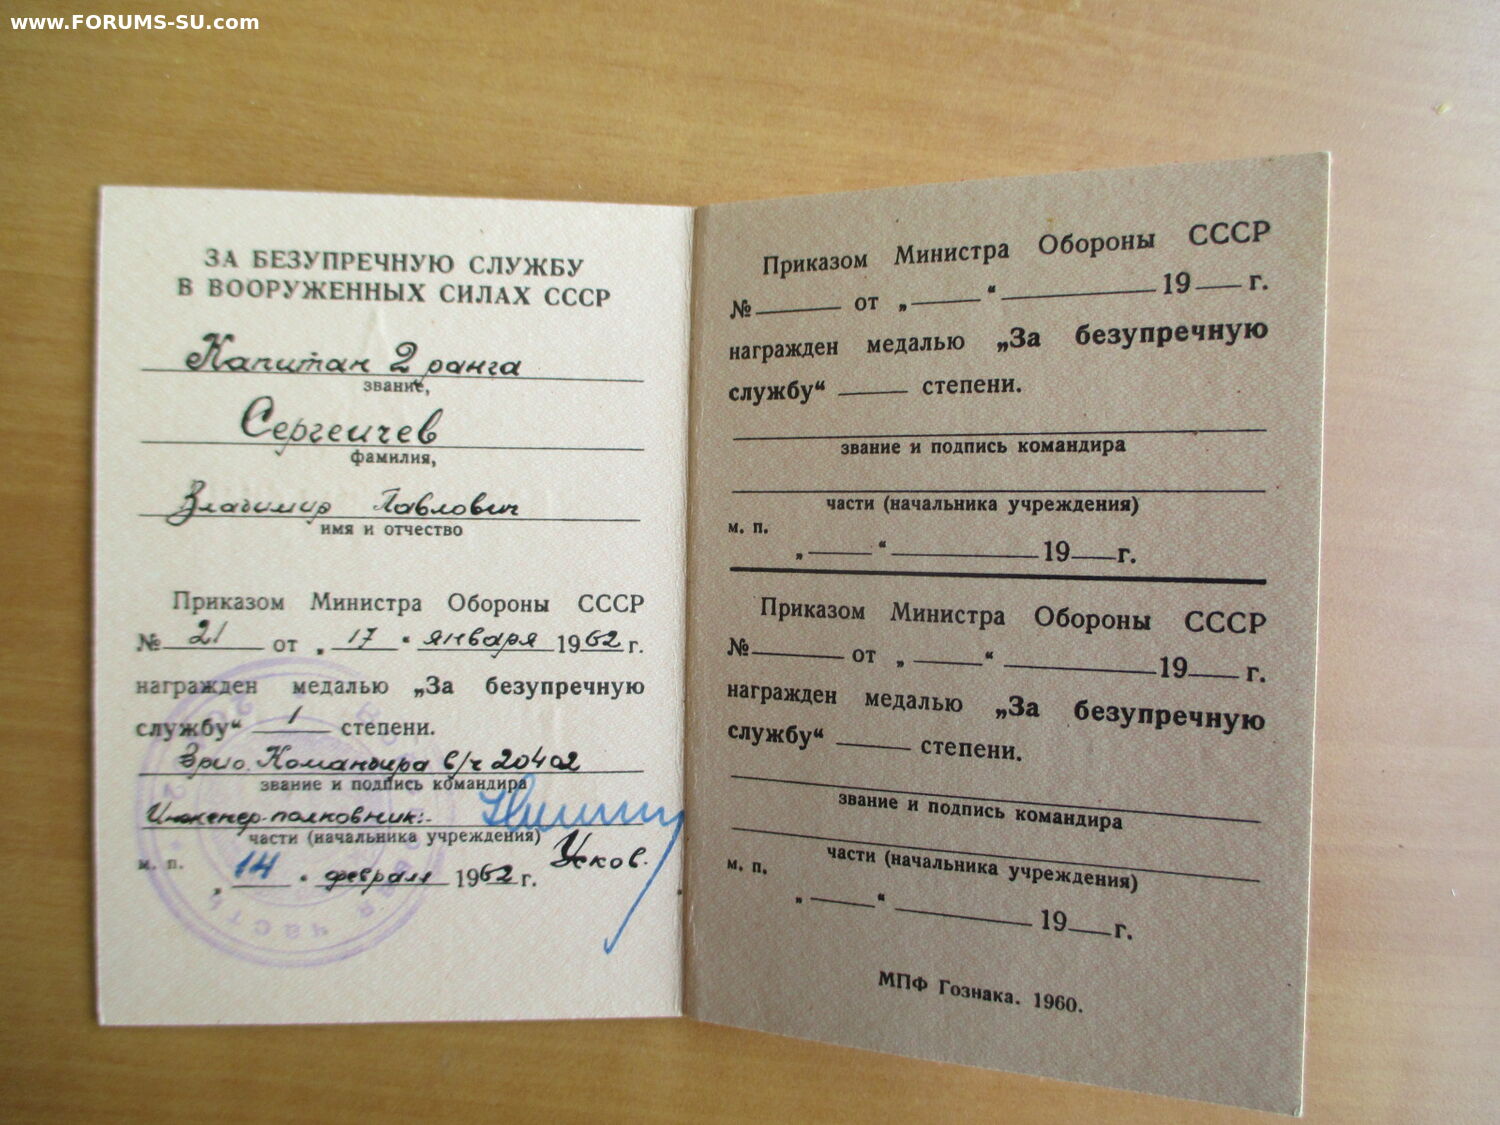 www.FORUMS-SU.com
ЗА БЕЗУПРЕЧНУЮ СЛУЖБУ
В ВООРУЖЕННЫХ СИЛАХ СССР
Капитан 2 ранга
звание,
Сергеичев
фамилия,
Владимир Павлович
имя и отчество
Приказом Министра Обороны СССР
№ 21 от „ 17 “ января 1962 г.
награжден медалью „За безупречную
службу“ 1 степени.
Врио Командира в/ч 20402
звание и подпись командира
Инженер-полковник:-
части (начальника учреждения)
Усков.
м. п.
„ 14 “ февраля 1962 г.
Приказом Министра Обороны СССР
№ от „ “ 19 г.
награжден медалью „За безупречную
службу“ степени.
звание и подпись командира
части (начальника учреждения)
м. п.
„ “ 19 г.
Приказом Министра Обороны СССР
№ от „ “ 19 г.
награжден медалью „За безупречную
службу“ степени.
звание и подпись командира
части (начальника учреждения)
м. п.
„ “ 19 г.
МПФ Гознака. 1960.